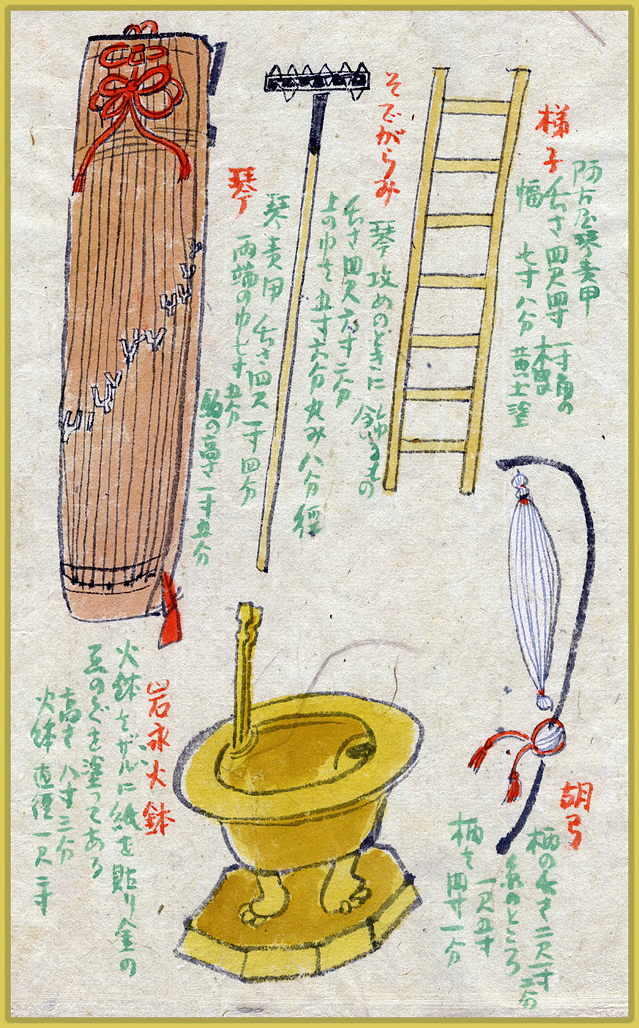 梯子
阿古屋琴責甲
長さ 四尺四寸 一寸角の
幅 七寸八分 黄土塗
そでがらみ
琴攻めのときに 飾るもの
長さ 四尺六寸二分
上の巾そ 五寸六分 丸み 八分 經
琴
琴責甲 長さ四尺一寸四分
両端の巾七寸五分
胡弓
柄の長さ 二尺二寸二分
糸のところ
一尺五寸
柄そ 四寸一分
岩永火鉢
火鉢をザルに紙を貼り金の
ゑのぐを塗つてある
高さ 八寸三分
火鉢 直径 一尺二寸